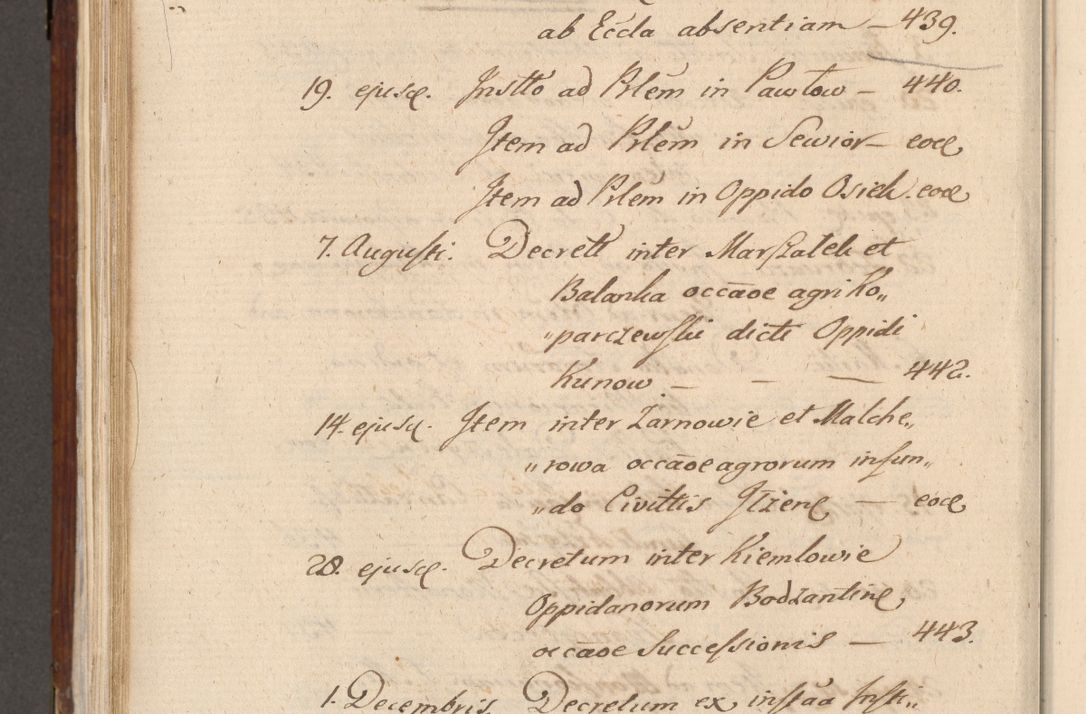 ab Eccla absentiam — 439.
19. ejusq. Instto ad Prlem in Pawłow — 440.
Item ad Prlem in Sewior — eoq
Item ad Prlem in Oppido Osiek. eoq
7. Augusti. Decrett inter Marszałek et
Balanka occāoe agri Ko„
„parczewski dicti Oppidi
Kunow — — — 442.
14. ejusq. Item inter Zarnowie et Malche„
„rowa occāoe agrorum in fun„
„do Civittis Itzenę — eoq
28. ejusq. Decretum inter Kiemlowie
Oppidanorum Bodzantinę,
occāoe Successionis — 443.
1. Decembris. Decretum ex instāa Insti„